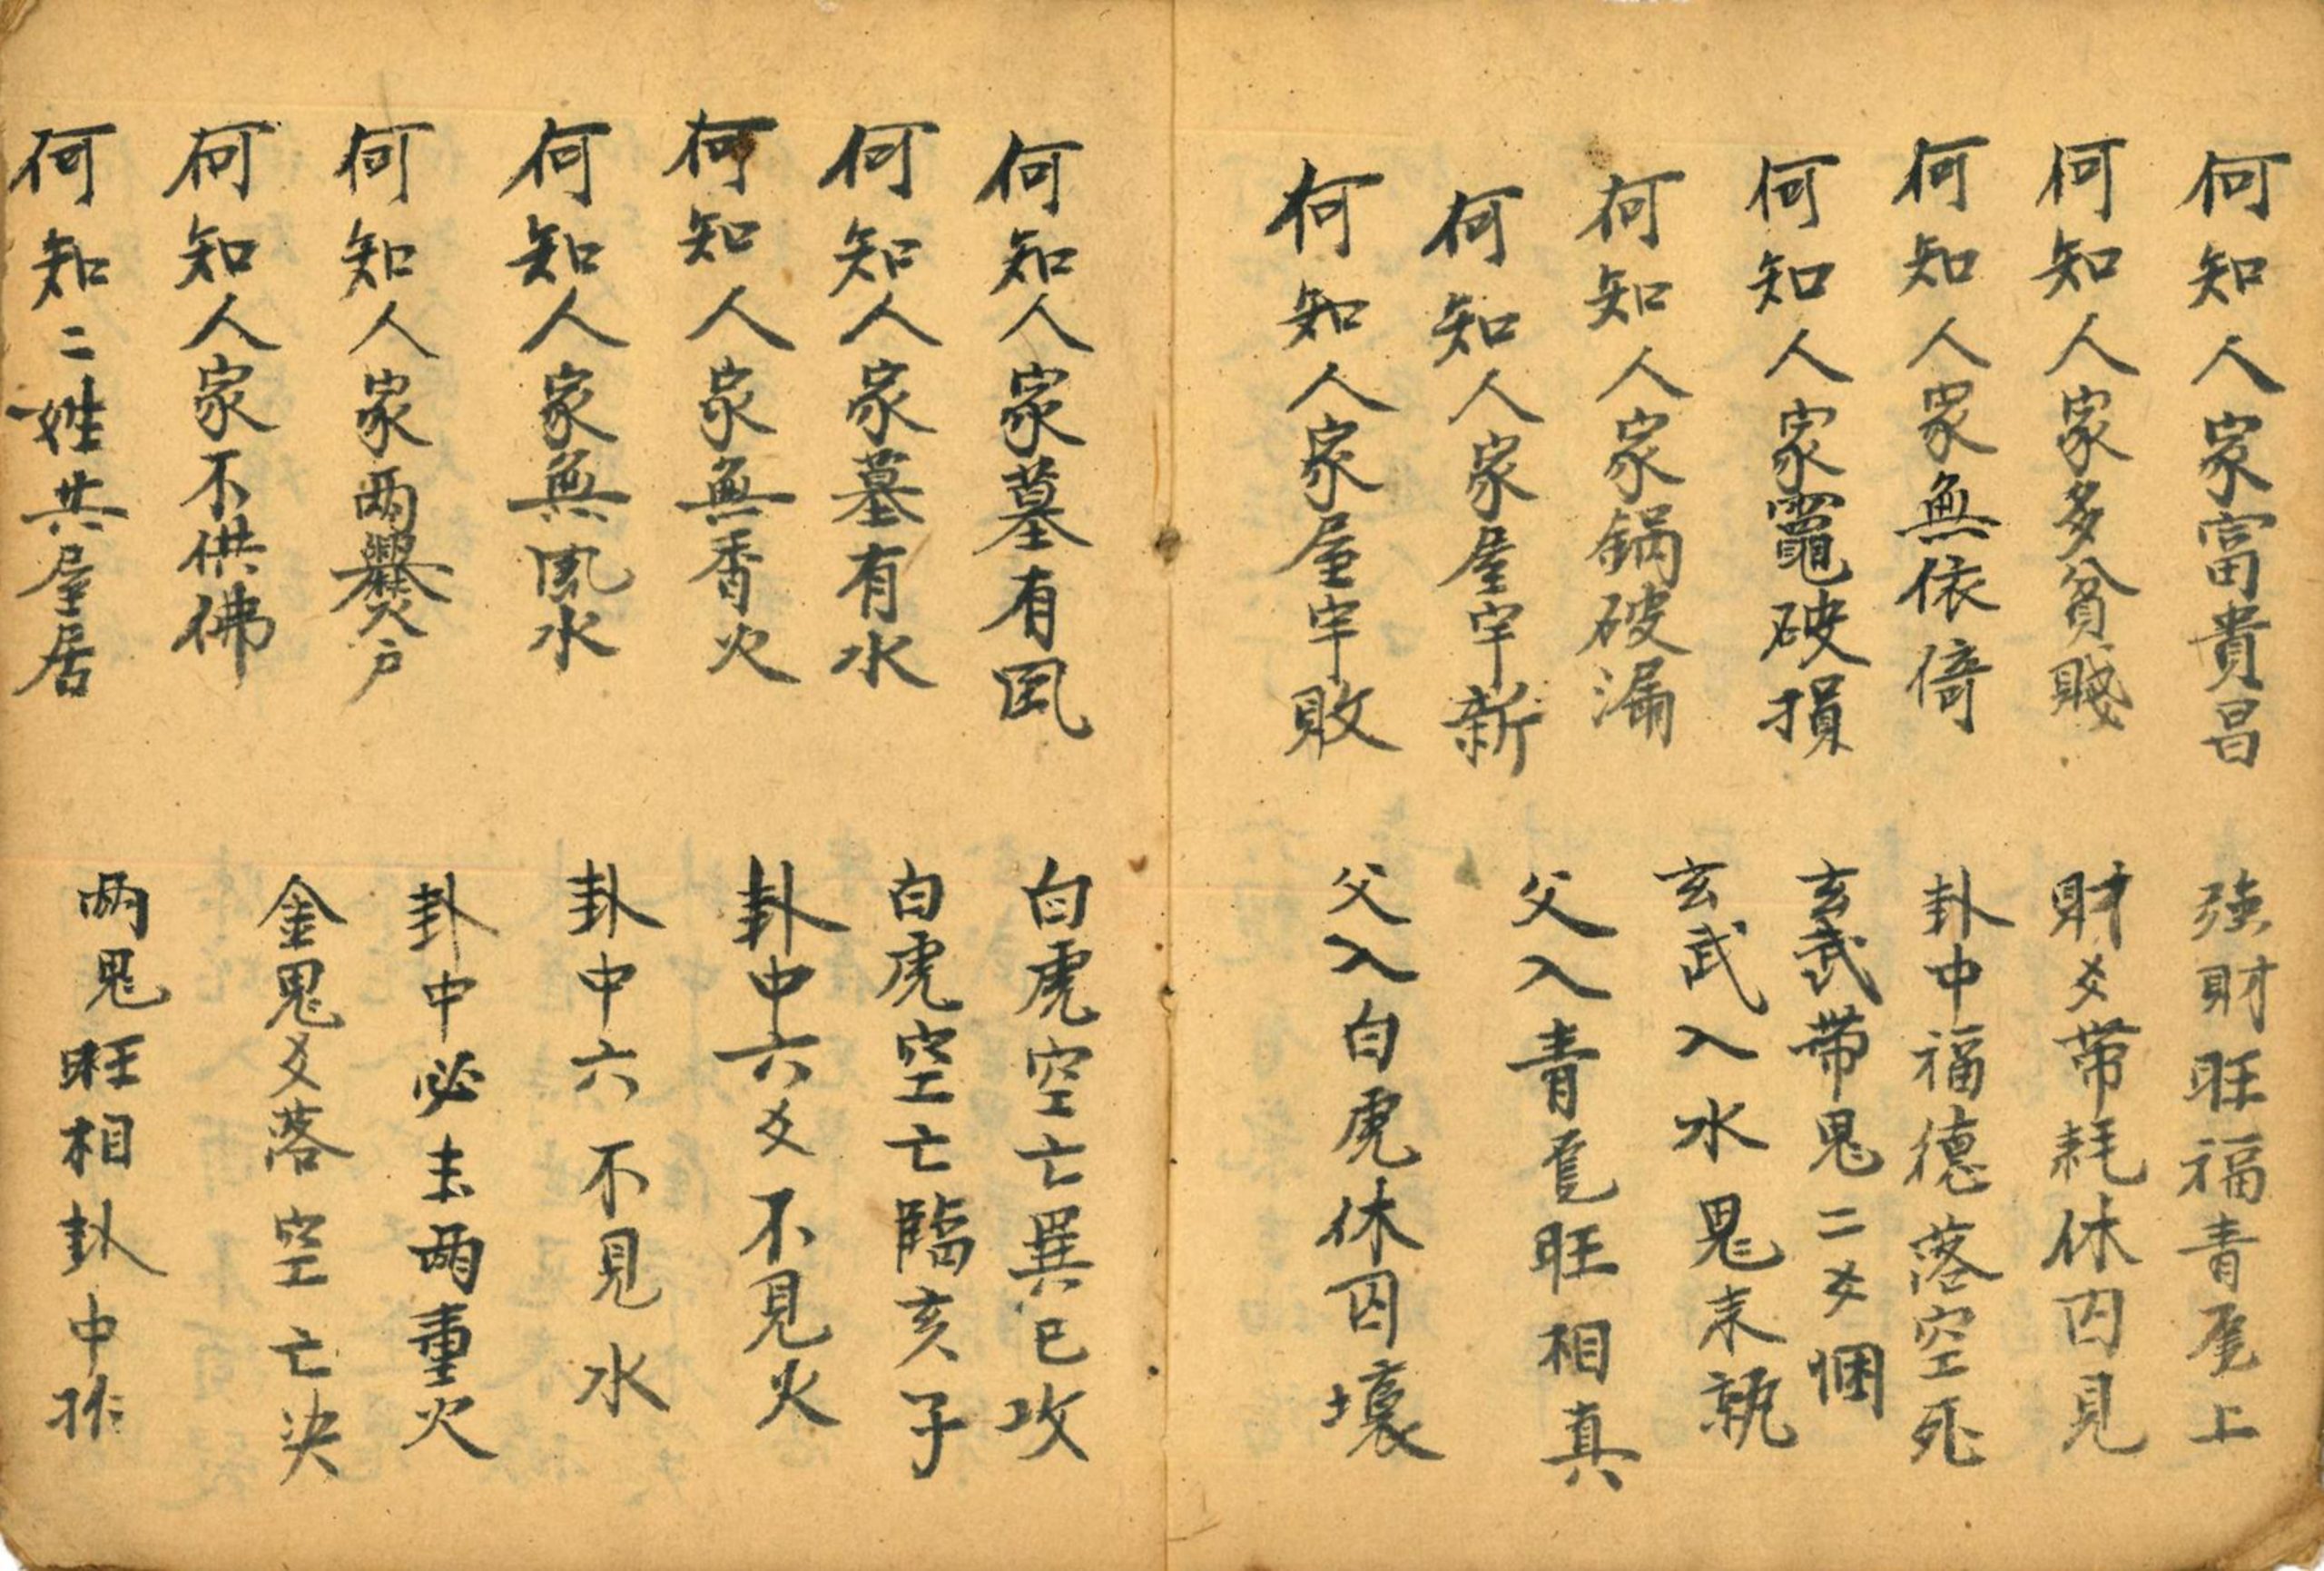 何知人家富貴昌 強財旺福青龍上
何知人家多貧賤 財爻带耗休囚見
何知人家無依倚 卦中福德落空死
何知人家竈破損 玄武带鬼二爻悃
何知人家鍋破漏 玄武入水鬼未執
何知人家屋宇新 父入青龍旺相真
何知人家屋宇敗 父入白虎休囚壞
何知人家墓有風 白虎空亡巽巳攻
何知人家墓有水 白虎空亡臨亥子
何知人家無香火 卦中六爻不見火
何知人家無風水 卦中六不見水
何知人家兩爨户 卦中必主兩重火
何知人家不供佛 金鬼爻落空亡決
何知二姓共屋居 兩鬼旺相卦中推